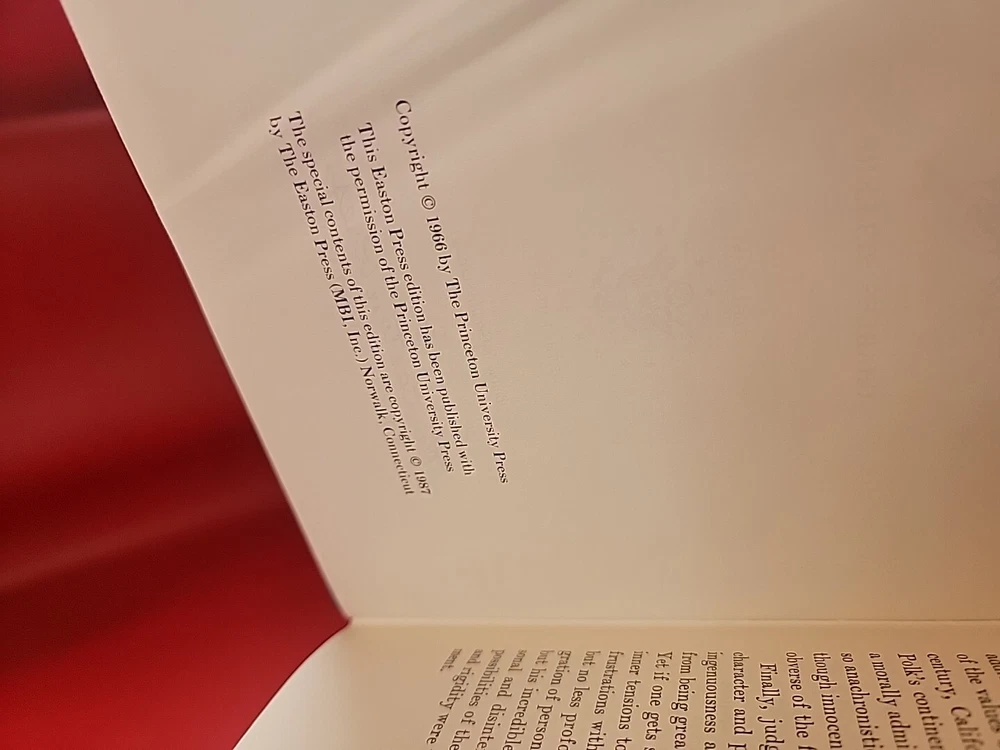 Copyright © 1966 by The Princeton University Press
This Easton Press edition has been published with
the permission of the Princeton University Press
The special contents of this edition are copyright © 1987
by The Easton Press (MBI, Inc.) Norwalk, Connecticut
of the values
century, Califo
Polk's contine
a morally admi
so anachronisti
though innocen
obverse of the
Finally, judg
character and p
ingenuousness a
from being grea
Yet if one gets s
inner tensions to
frustrations with
but no less profo
gration of person
but his incredible
sonal and disinte
possibilities of the
and rigidity were
ment.